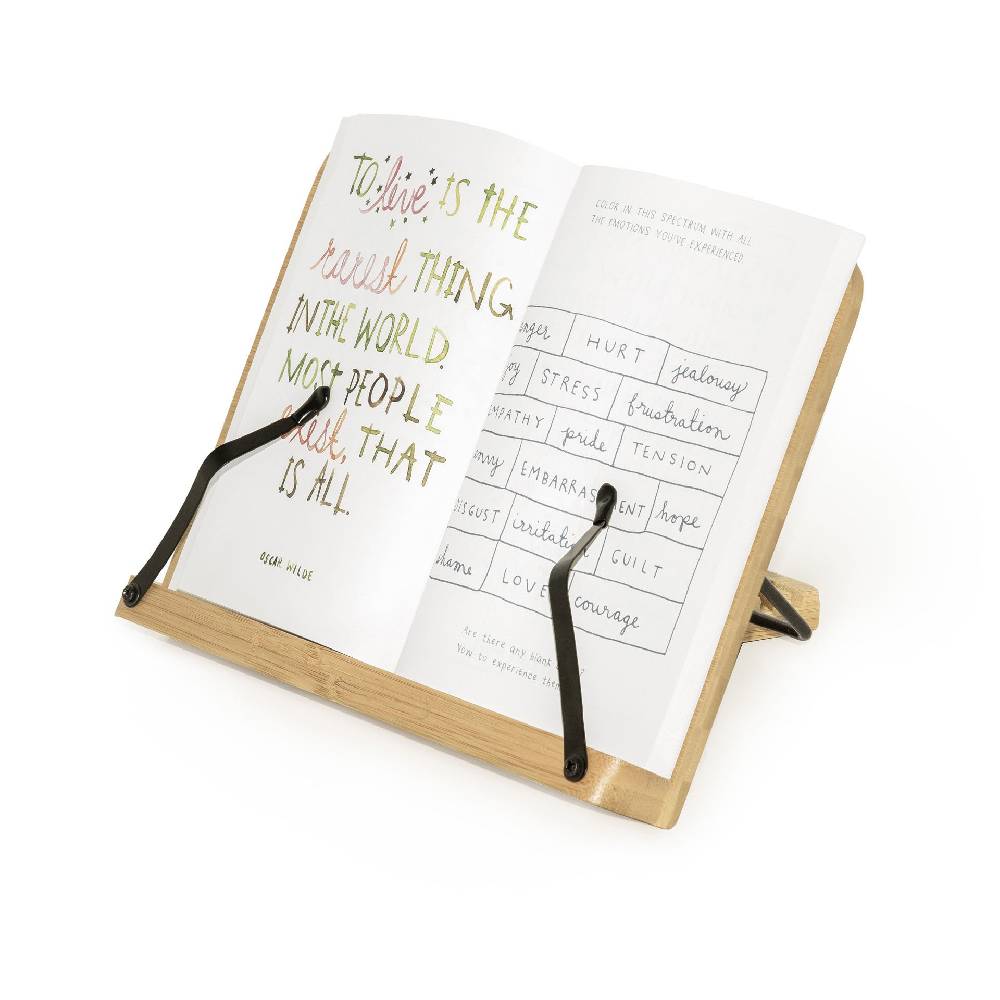 TO live IS THE
rarest THING
IN THE WORLD.
MOST PEOPLE
exist, THAT
IS ALL.
OSCAR WILDE
COLOR IN THIS SPECTRUM WITH ALL
THE EMOTIONS YOU'VE EXPERIENCED
HURT jealousy
STRESS frustration
pride TENSION
hope
irritation GUILT
LOVE courage
Are there any blank
to experience